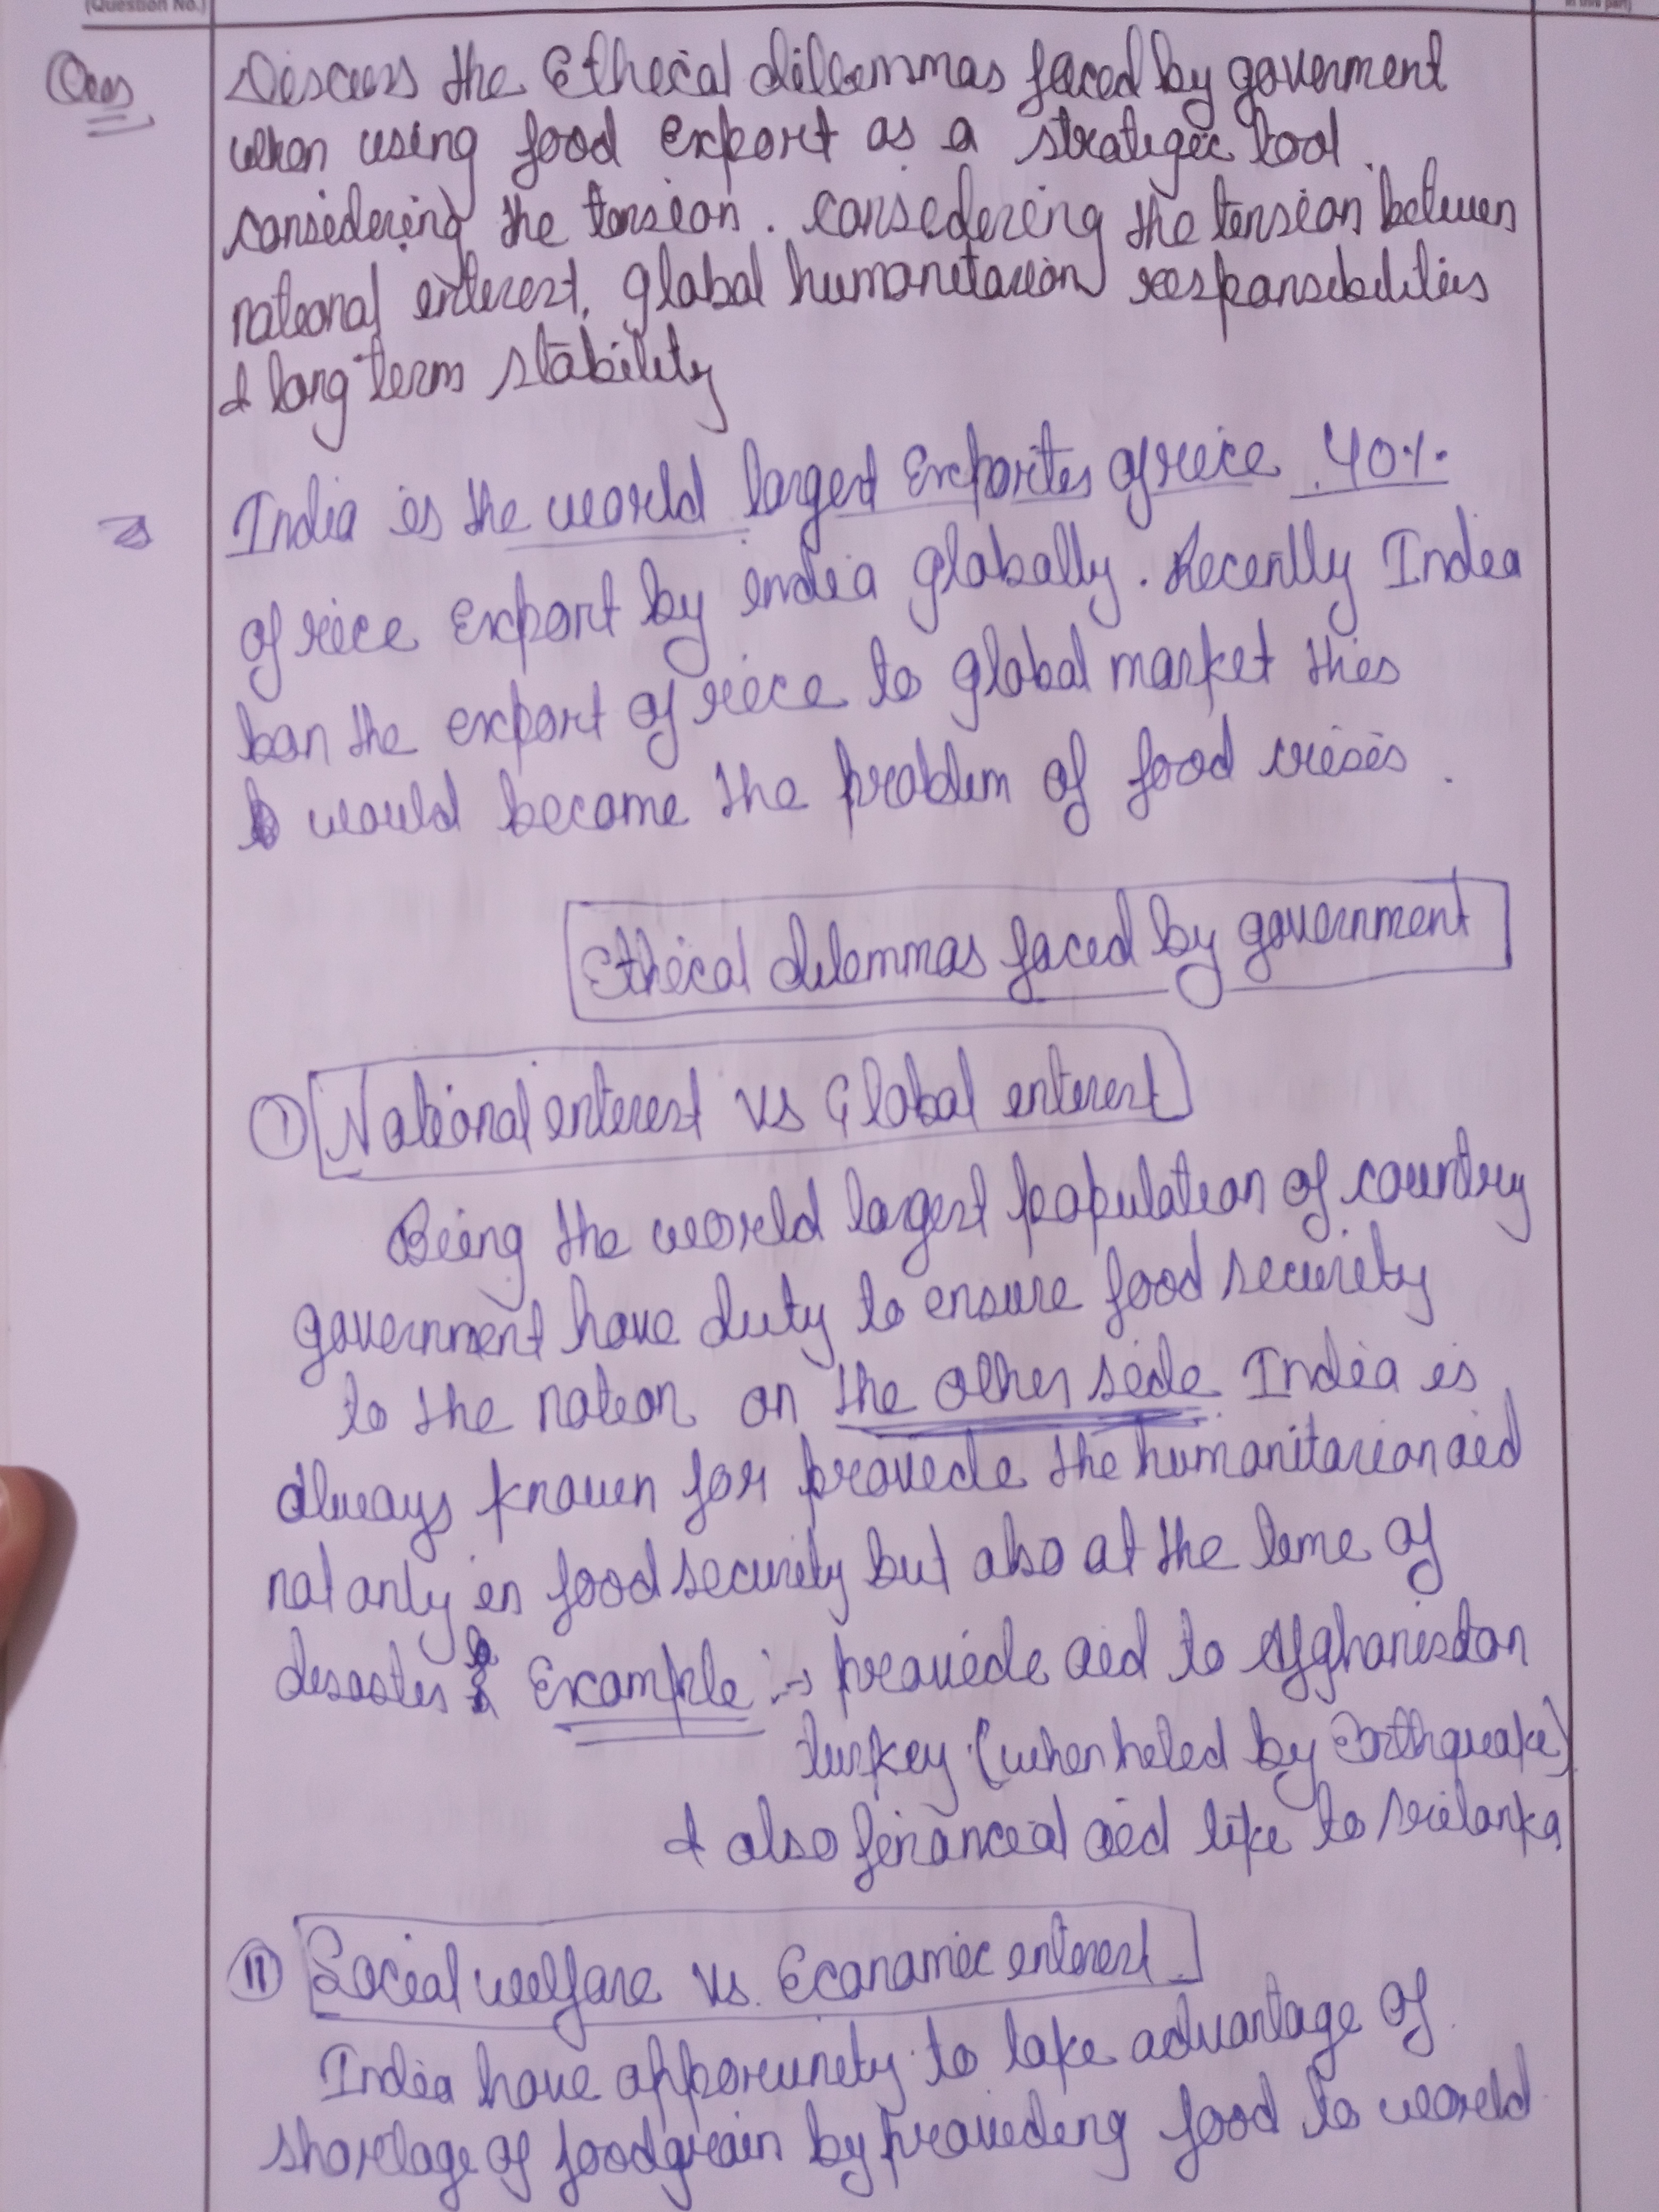 (Question No.)
in this part)
Ques
Discuss the Ethical dillemmas faced by goverment
when using food export as a strategic tool.
considering the tension. considering the tension between
national interest, global humanitarian responsibilities
& long term stability
India is the world largest Exporter of rice 40%
of rice export by india globally. Recently India
ban the export of rice to global market this
would become the problem of food crisis.
Ethical dilemmas faced by government
① National interest vs Global interest
Being the world largest population of country
government have duty to ensure food security
to the nation on the other side India is
always known for provide the humanitarian aid
not only in food security but also at the time of
disaster Example :→ provide aid to Afghanistan
turkey (when by Earthquake)
& also financial aid like to srilanka
⑪ Social welfare vs. Economic interest.
India have apporunity to take advantage of
shortage of foodgrain by providing food to world